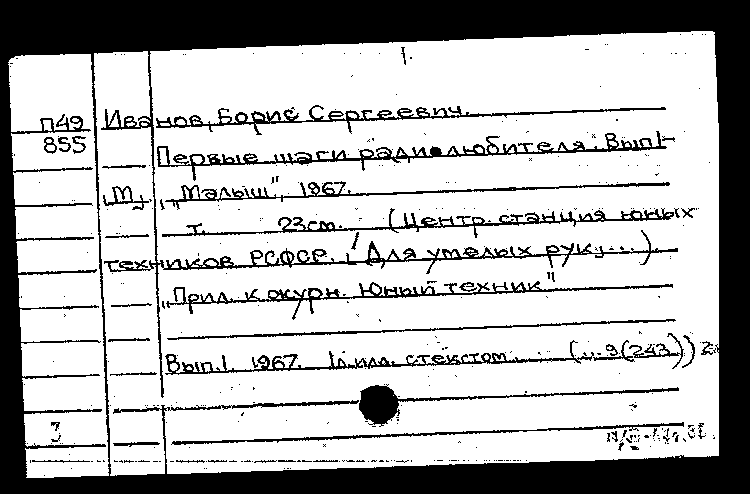 1.
П49 Иванов, Борис Сергеевич.
855 Первые шаги радиолюбителя. Вып.1-
М., "Малыш", 1967.
т. 23см. (Центр. станция юных
техников РСФСР. Для умелых рук,...).
"Прил. к журн. Юный техник"
Вып.1. 1967. 1л.илл. с текстом. (...9(243))
3